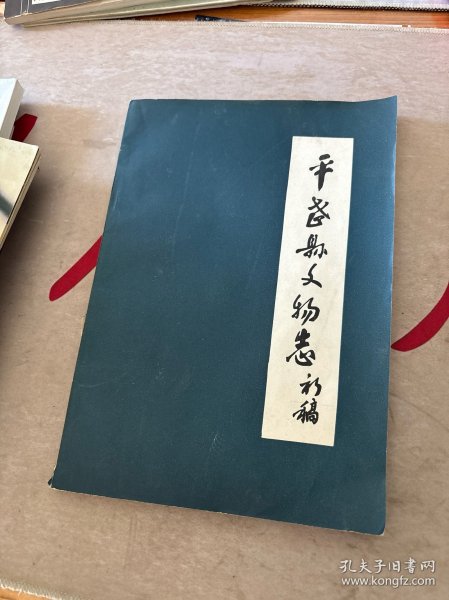 平武縣文物志初稿
孔夫子旧书网
www.kongfz.com